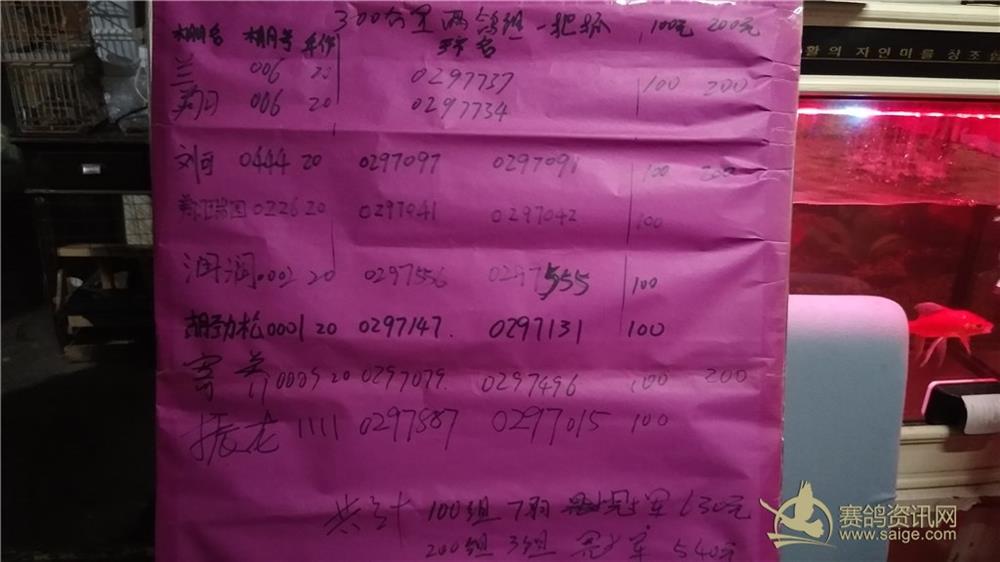 300公里两鸽组一把抓 100元 200元
棚名 棚号 年份 环号
兰 006 20 0297737 100 200
006 20 0297734
刘可 0444 20 0297097 0297091 100 200
0226 20 0297041 0297042 100
润润 0002 20 0297556 0297555 100
胡劲松 0001 20 0297147 0297131 100
寄养 0009 20 0297079 0297496 100 200
振龙 1111 0297887 0297015 100
共计 100组 7羽 冠军 630元
200组 3组 冠军 540元
的 자연미를 창조
赛鸽资讯网
www.saige.com